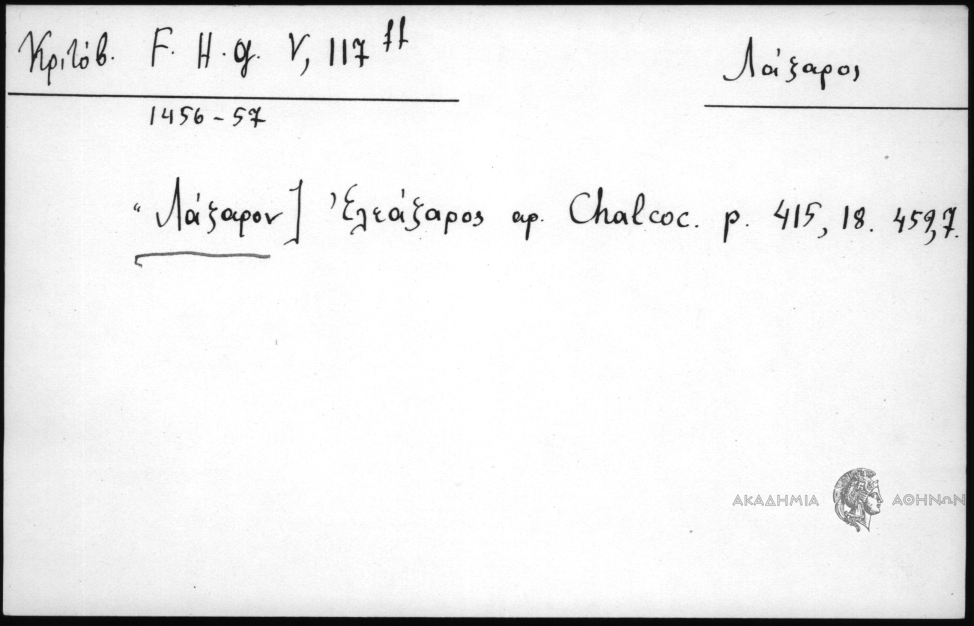 Κριτόβ. F. H. g. V, 117 ff
Λάζαρος
1456-57
"Λάζαρον] Ἐλεάζαρος ap. Chalcoc. p. 415, 18. 459,7.
ΑΚΑΔΗΜΙΑ ΑΘΗΝΩΝ